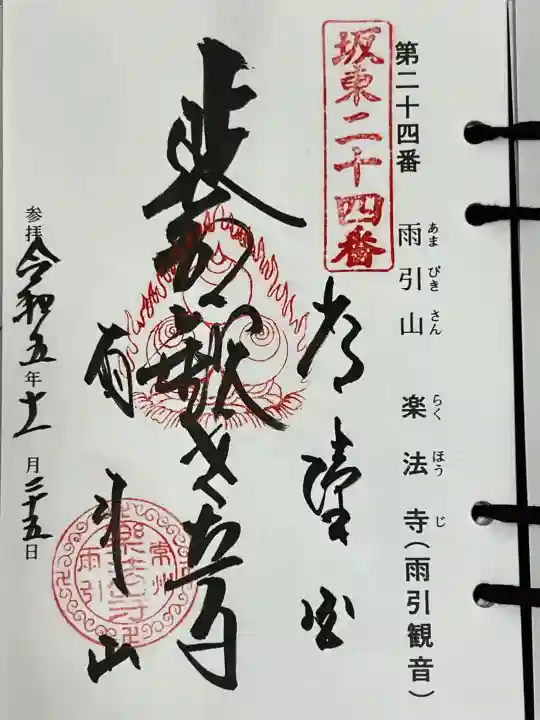 第二十四番 雨引山 楽法寺(雨引観音)
あまびきさん らくほうじ
坂東二十四番
常陸国
雨引山
常州
楽法寺
雨引
参拝 令和五年十一月二十五日